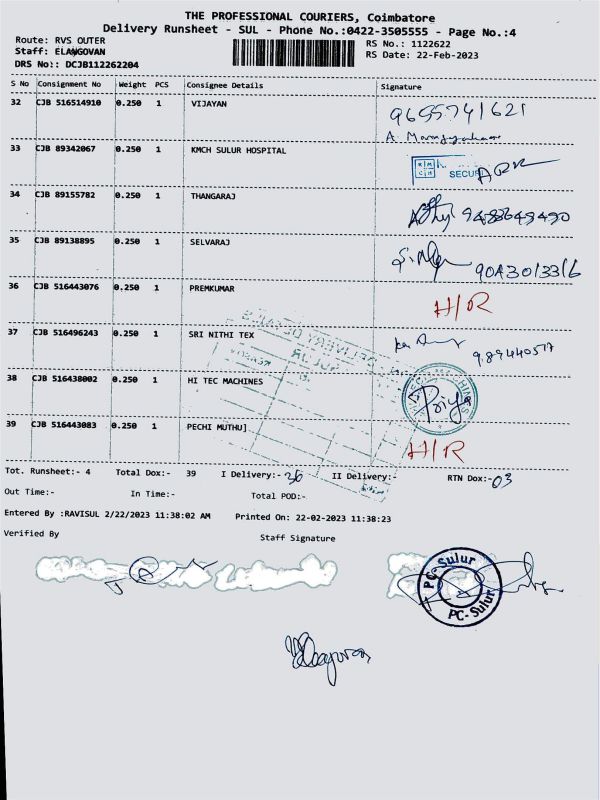 THE PROFESSIONAL COURIERS, Coimbatore
Delivery Runsheet - SUL - Phone No.:0422-3505555 - Page No.:4
Route: RVS OUTER
RS No.: 1122622
Staff: ELANGOVAN
RS Date: 22-Feb-2023
DRS No:: DCJB112262204
S No Consignment No Weight PCS Consignee Details Signature
32 CJB 516514910 0.250 1 VIJAYAN 9655741621
33 CJB 89342067 0.250 1 KMCH SULUR HOSPITAL
KMCH SECU
34 CJB 89155782 0.250 1 THANGARAJ
9488649490
35 CJB 89138895 0.250 1 SELVARAJ
36 CJB 516443076 0.250 1 PREMKUMAR H/R
37 CJB 516496243 0.250 1 SRI NITHI TEX
38 CJB 516438002 0.250 1 HI TEC MACHINES Priya
39 CJB 516443083 0.250 1 PECHI MUTHU] H/R
Tot. Runsheet:- 4 Total Dox:- 39 I Delivery:- 36 II Delivery:- RTN Dox:- 03
Out Time:- In Time:- Total POD:-
Entered By :RAVISUL 2/22/2023 11:38:02 AM Printed On: 22-02-2023 11:38:23
Verified By Staff Signature
PC-Sulur
PC-Sulur